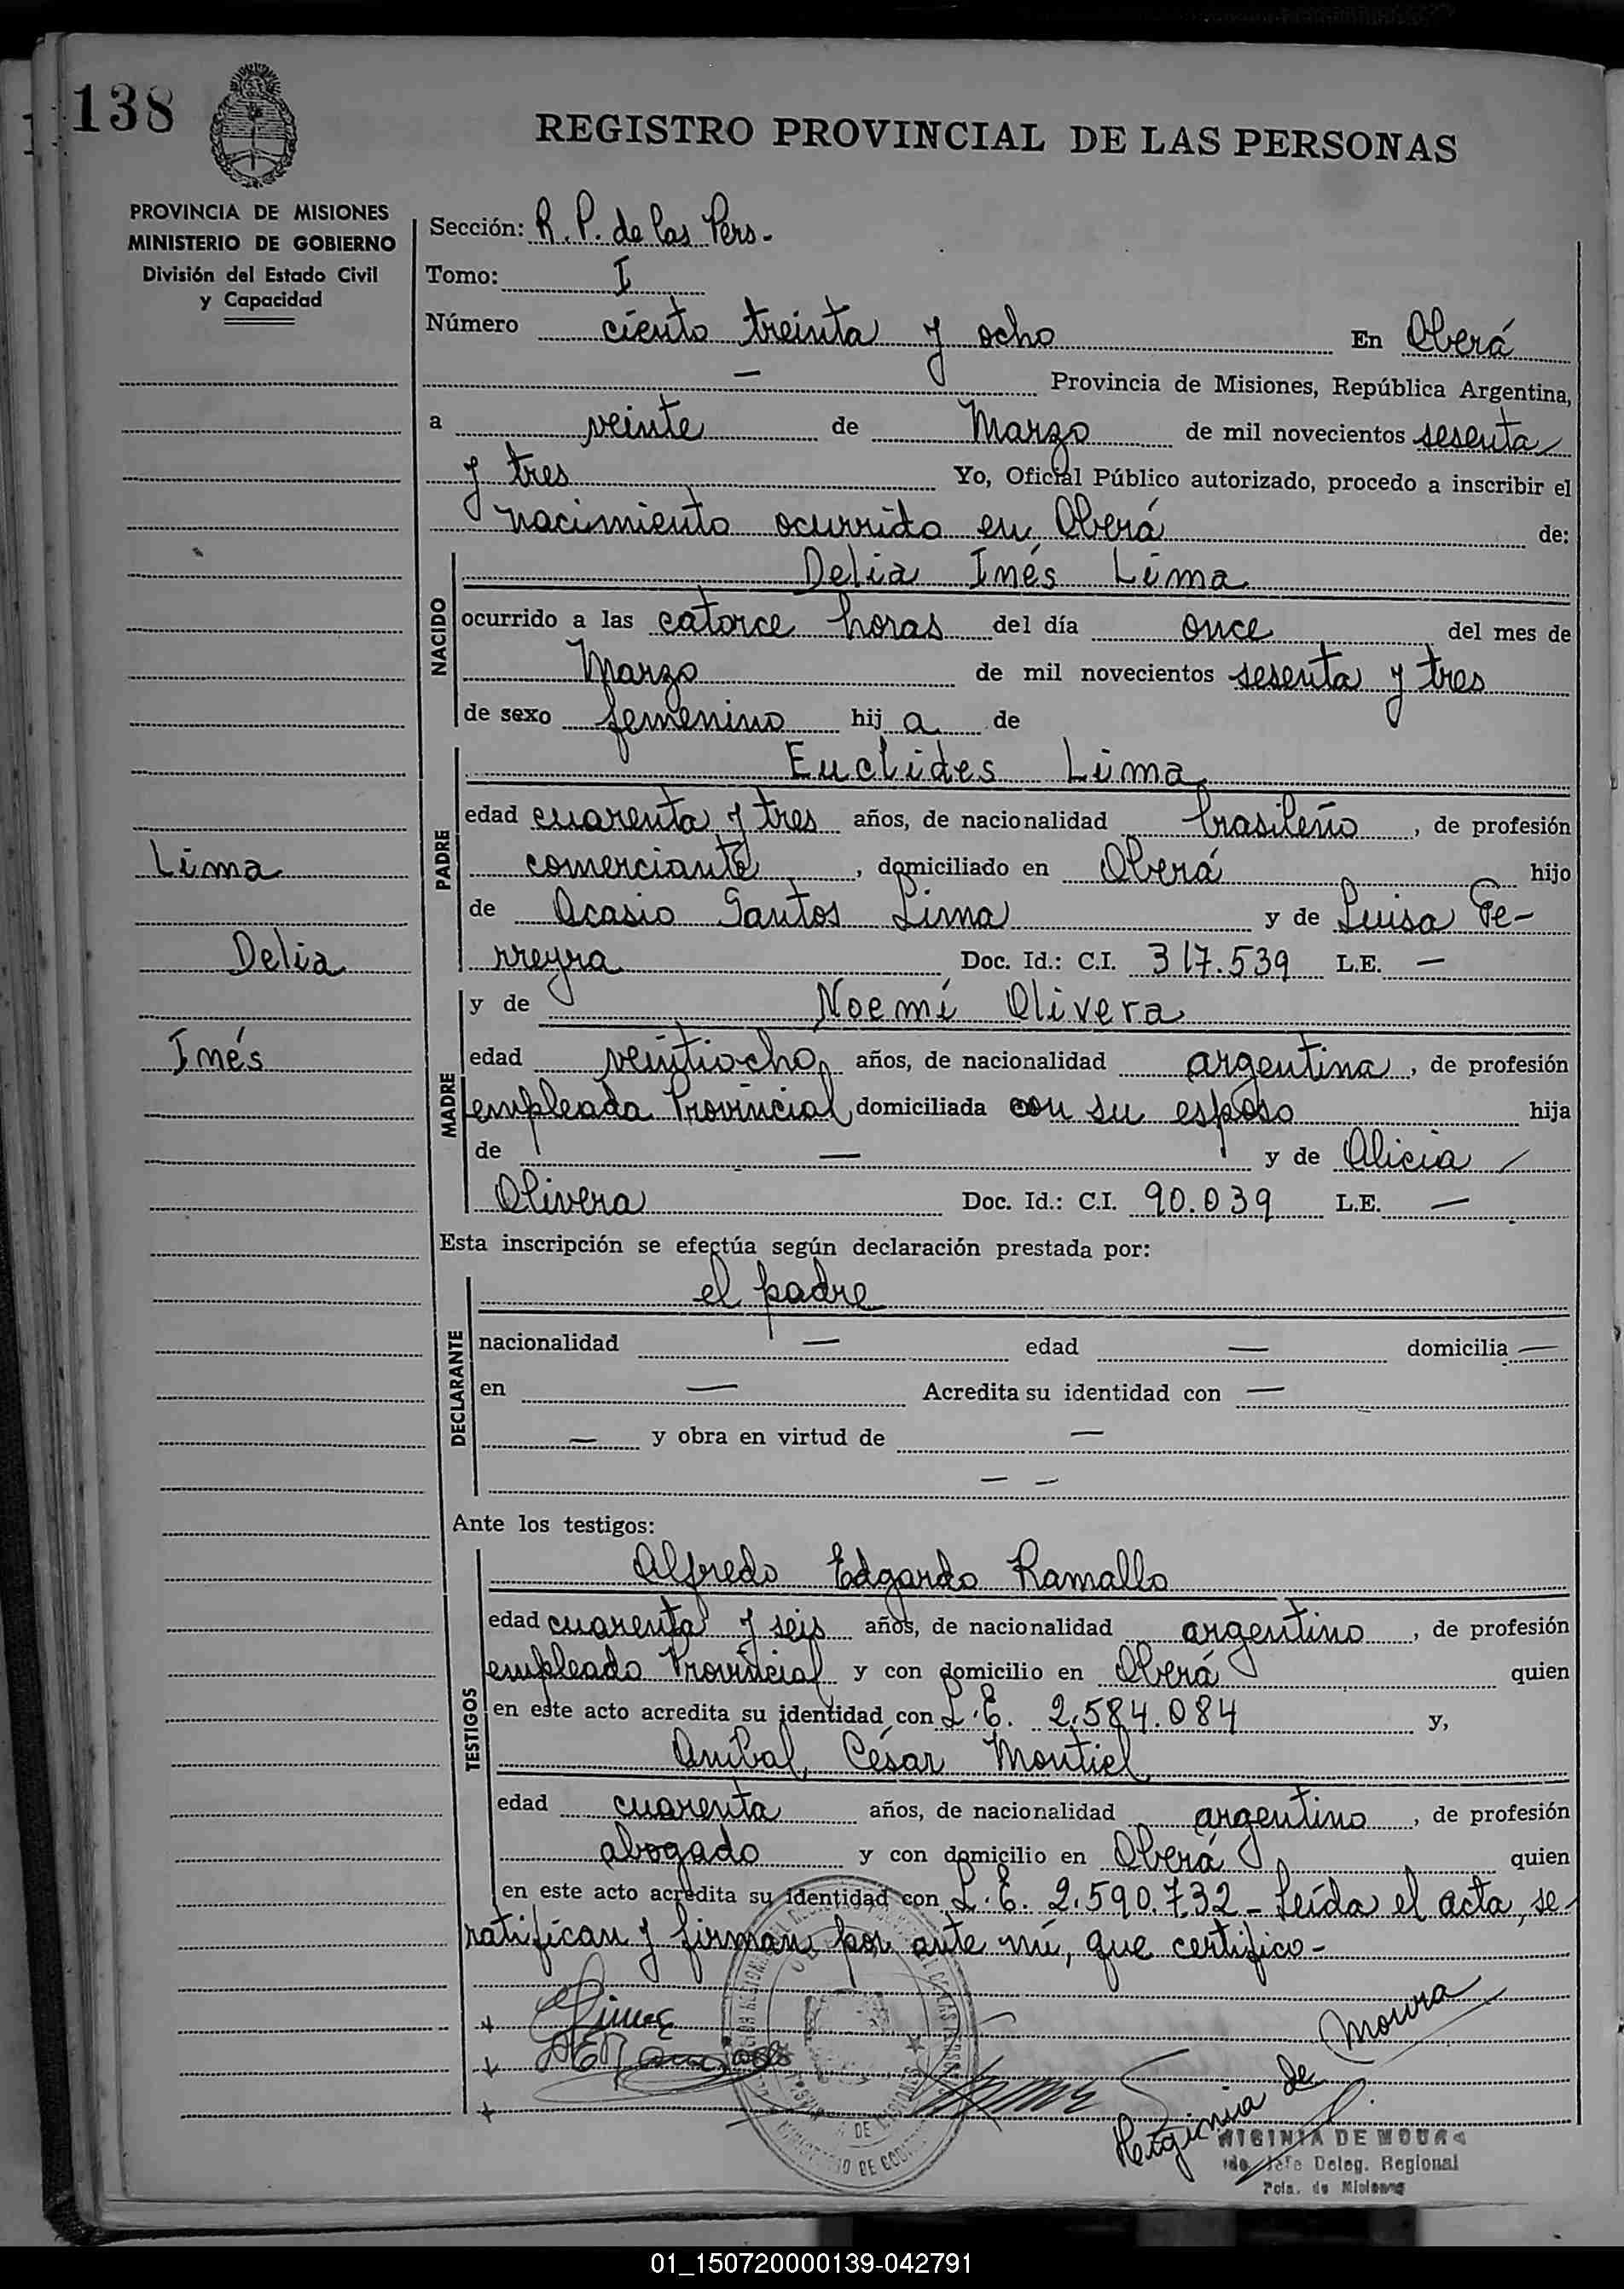 138
REGISTRO PROVINCIAL DE LAS PERSONAS
PROVINCIA DE MISIONES
MINISTERIO DE GOBIERNO
División del Estado Civil
y Capacidad
Sección: R. P. de las Pers.-
Tomo: I
Número ciento treinta y ocho En Oberá
— Provincia de Misiones, República Argentina,
a veinte de Marzo de mil novecientos sesenta
y tres Yo, Oficial Público autorizado, procedo a inscribir el
nacimiento ocurrido en Oberá de:
NACIDO
Delia Inés Lima
ocurrido a las catorce horas del día once del mes de
Marzo de mil novecientos sesenta y tres
de sexo femenino hij a de
PADRE
Euclides Lima
edad cuarenta y tres años, de nacionalidad brasileño, de profesión
comerciante, domiciliado en Oberá hijo
de Acasio Santos Lima y de Luisa Fe-
rreyra Doc. Id.: C.I. 317.539 L.E. —
Lima
Delia
Inés
MADRE
y de Noemí Olivera
edad veintiocho años, de nacionalidad argentina, de profesión
empleada Provincial, domiciliada con su esposo hija
de — y de Alicia
Olivera Doc. Id.: C.I. 90.039 L.E. —
Esta inscripción se efectúa según declaración prestada por:
DECLARANTE
el padre
nacionalidad — edad — domicilia —
en — Acredita su identidad con —
— y obra en virtud de —
— —
Ante los testigos:
TESTIGOS
Alfredo Edgardo Ramallo
edad cuarenta y seis años, de nacionalidad argentino, de profesión
empleado Provincial y con domicilio en Oberá quien
en este acto acredita su identidad con L.E. 2.584.084 y,
Aníbal César Montiel
edad cuarenta años, de nacionalidad argentino, de profesión
abogado y con domicilio en Oberá quien
en este acto acredita su identidad con L.E. 2.590.732 - Leída el acta, se
ratifican y firman por ante mí, que certifico -
Higinia de Moura
HIGINIA DE MOURA
Jefe Deleg. Regional
Pcia. de Misiones
01_150720000139-042791